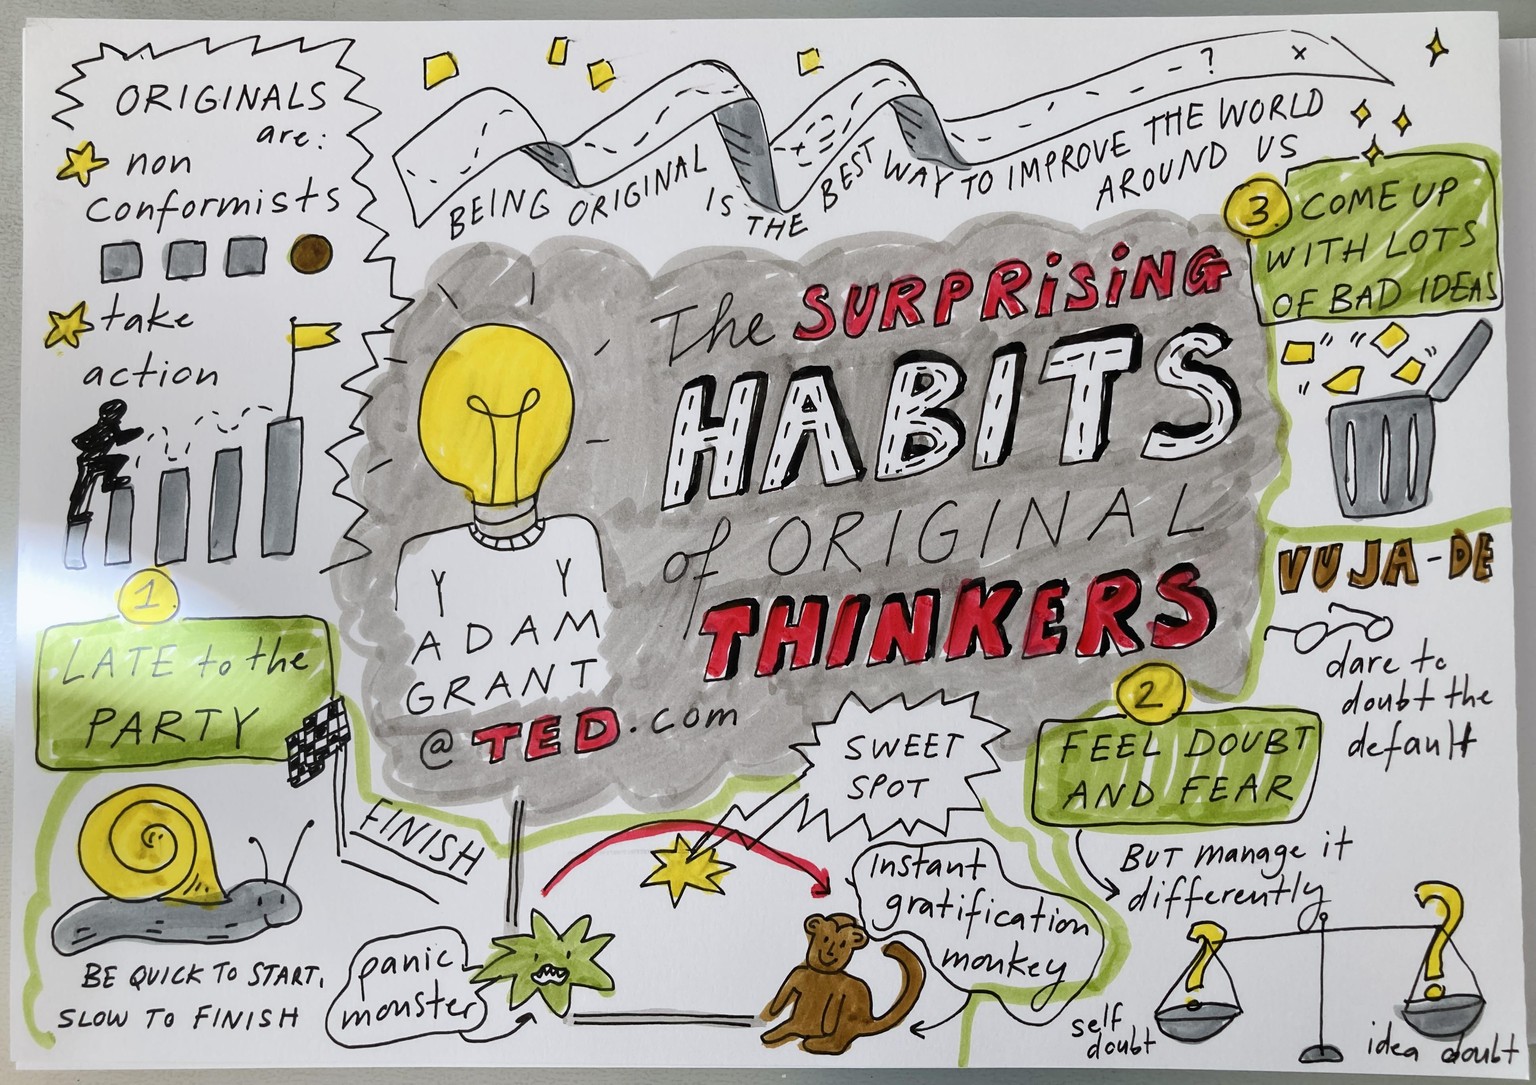 ORIGINALS
are:
non
conformists
take
action
BEING ORIGINAL IS THE BEST WAY TO IMPROVE THE WORLD
AROUND US
? x
The SURPRiSiNG
HABITS
of ORIGINAL
THINKERS
Y Y
ADAM
GRANT
@ TED.com
1.
LATE to the
PARTY
FINISH
BE QUICK TO START,
SLOW TO FINISH
panic
monster
SWEET
SPOT
instant
gratification
monkey
2
FEEL DOUBT
AND FEAR
BUT manage it
differently
?
?
self
doubt
idea doubt
VUJA-DE
dare to
doubt the
default
3
COME UP
WITH LOTS
OF BAD IDEAS